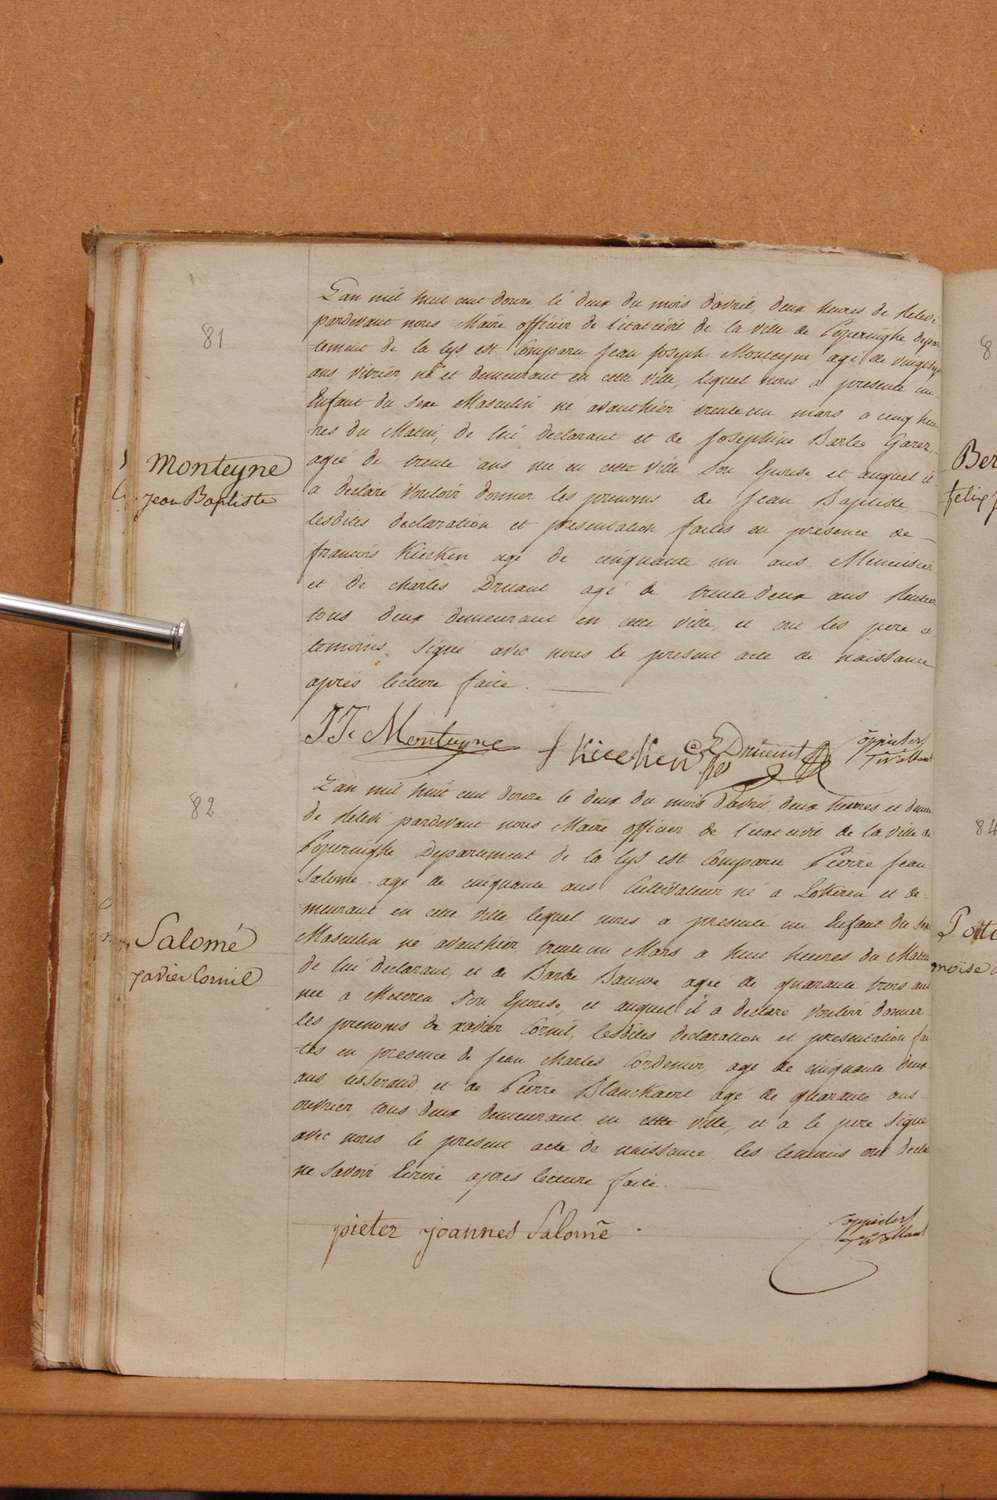 81
Monteyne
Jean Baptiste
L'an mil huit cent douze le deux du mois d'avril, deux heures de relevé
pardevant nous Maire officier de l'etat civil de la ville de Poperinghe depar
tement de la Lys est Comparu Jean Joseph Monteyne agé de vingt
ans vitrier, né et demeurant en cette ville, lequel nous a presenté un
Enfant du sexe Masculin né avanthier trente un mars a cinq heu
res du Matin, de lui declarant et de Josephine Barbe
agée de trente ans née en cette ville son Epouse et auquel il
a declaré vouloir donner les prenoms de Jean Baptiste
lesdites declaration et presentation faites en presence de
francois Kieken agé de cinquante un ans Menuisier
et de Charles Druant agé de trente deux ans
tous deux demeurant en cette ville et ont les pere et
temoins signé avec nous le present acte de naissance
après lecture faite.
JJ. Monteyne f Kieeken
82
Salomé
xavier Cornil
L'an mil huit cent douze le deux du mois d'avril deux heures et demie
de relevé pardevant nous Maire officier de l'etat civil de la ville de
Poperinghe Departement de la Lys est Comparu Pierre Jean
Salomé agé de cinquante ans Cultivateur né a et de
meurant en cette ville lequel nous a presenté un Enfant du sexe
Masculin né avanthier trente un Mars a huit heures du Matin
de lui declarant, et de Barbe agée de quarante trois ans
née a Meteren son Epouse, et auquel il a declaré vouloir donner
les prenoms de xavier Cornil, lesdites declaration et presentation fai
tes en presence de Jean Charles Cordenier, agé de cinquante deux
ans tisserand et de Pierre Blanckaert agé de quarante ans
ouvrier tous deux demeurant en cette ville, et a le pere signé
avec nous le present acte de naissance les temoins ont declaré
ne savoir Ecrire après lecture faite.
pieter joannes Salomé
Ber
felix
84
Potte
moise